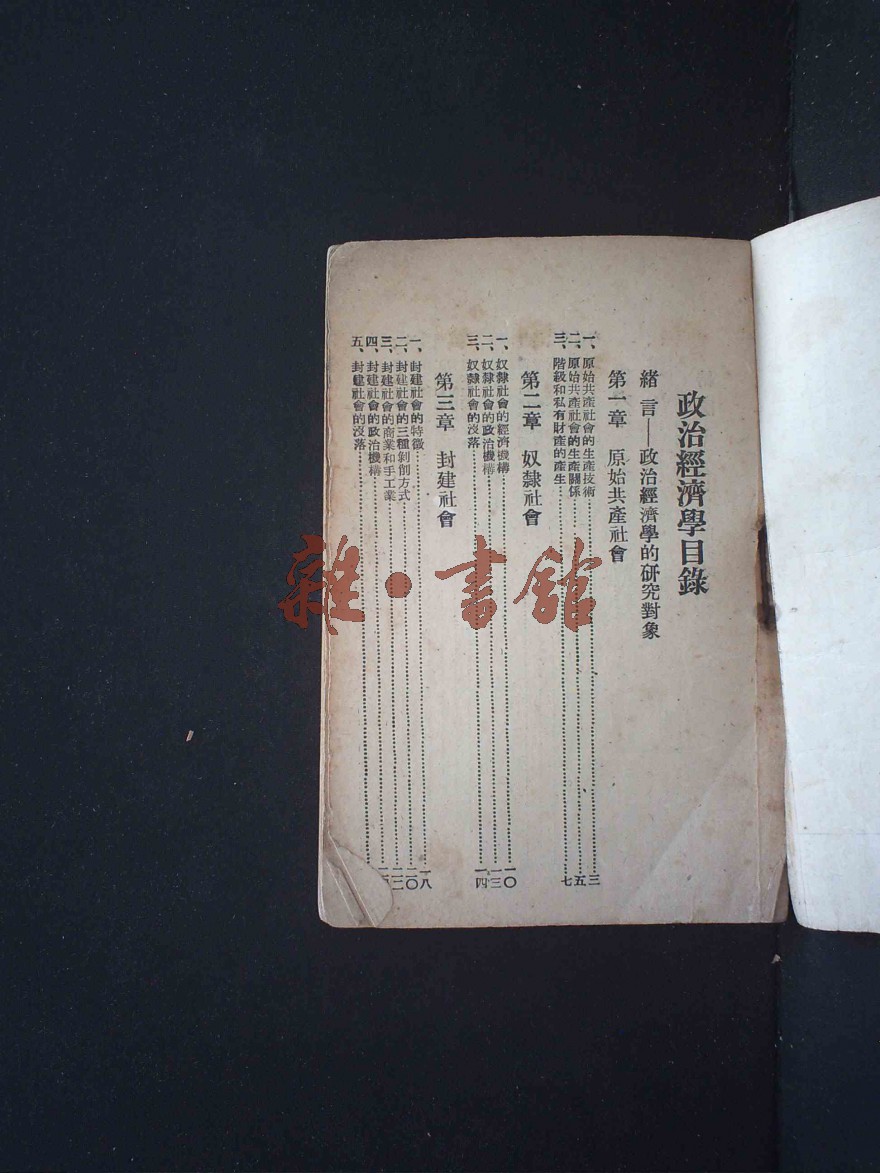 政治經濟學目錄
緒言——政治經濟學的研究對象
第一章 原始共產社會
一、原始共產社會的生產技術……三
二、原始共產社會的生產關係……五
三、階級和私有財產的產生……七
第二章 奴隸社會
一、奴隸社會的經濟機構……一〇
二、奴隸社會的政治機構……一三
三、奴隸社會的沒落……一四
第三章 封建社會
一、封建社會的特徵……一八
二、封建社會的三種剝削方式……二〇
三、封建社會的商業和手工業……二二
四、封建社會的政治機構……
五、封建社會的沒落……
雜·書館